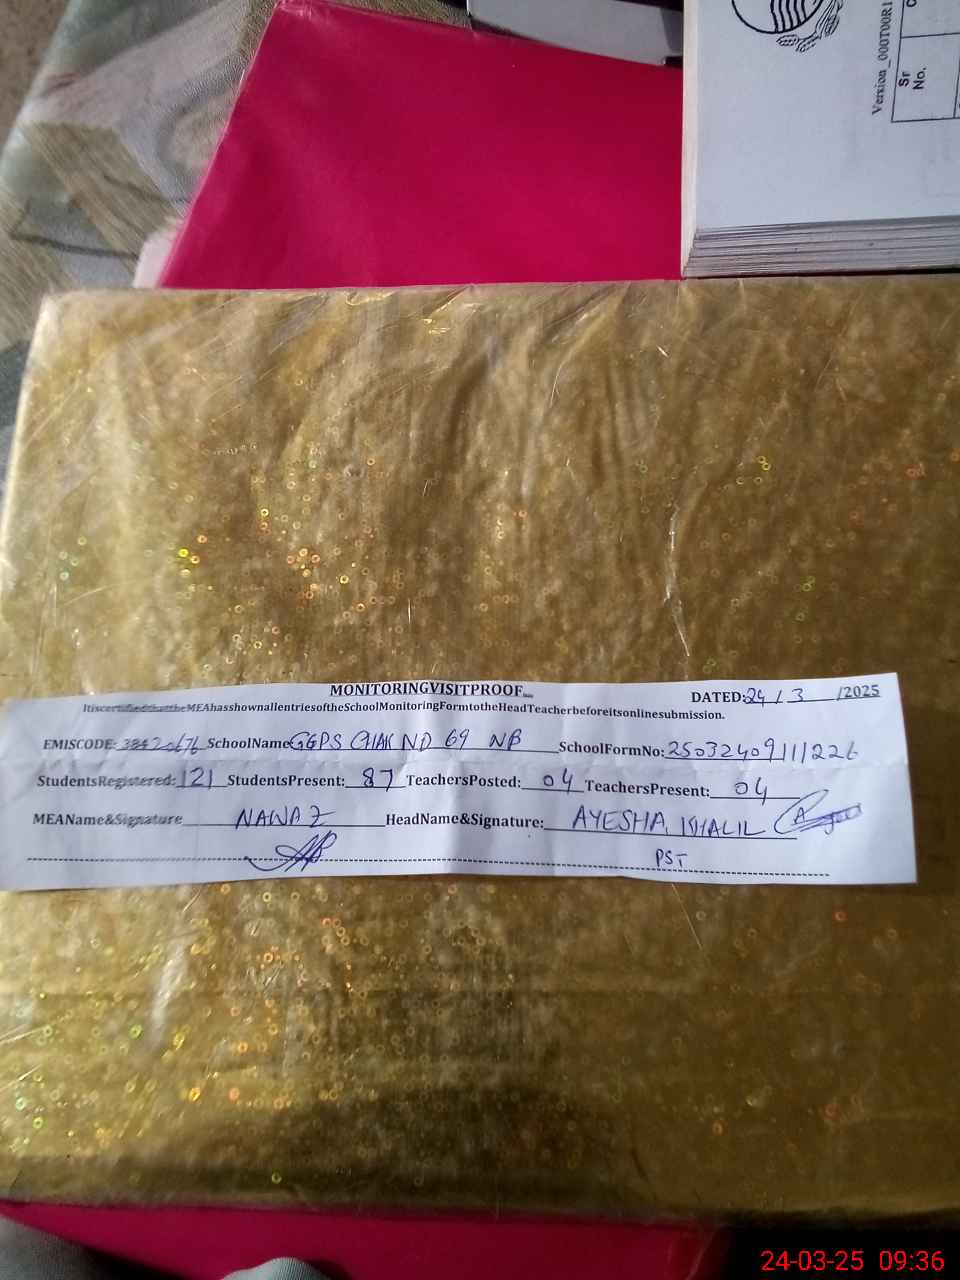 Version_000T00R1
Sr
No.
MONITORINGVISITPROOF
DATED:24/3/2025
ItiscertifiedthattheMEAhasshownallentriesoftheSchoolMonitoringFormtotheHeadTeacherbeforeitsonlinesubmission.
EMISCODE: 38420676 SchoolName GGPS CHAK NO 69 NB SchoolFormNo: 25032409111226
StudentsRegistered: 121 StudentsPresent: 87 TeachersPosted: 04 TeachersPresent: 04
MEAName&Signature NAWAZ HeadName&Signature: AYESHA KHALIL
PST
24-03-25 09:36